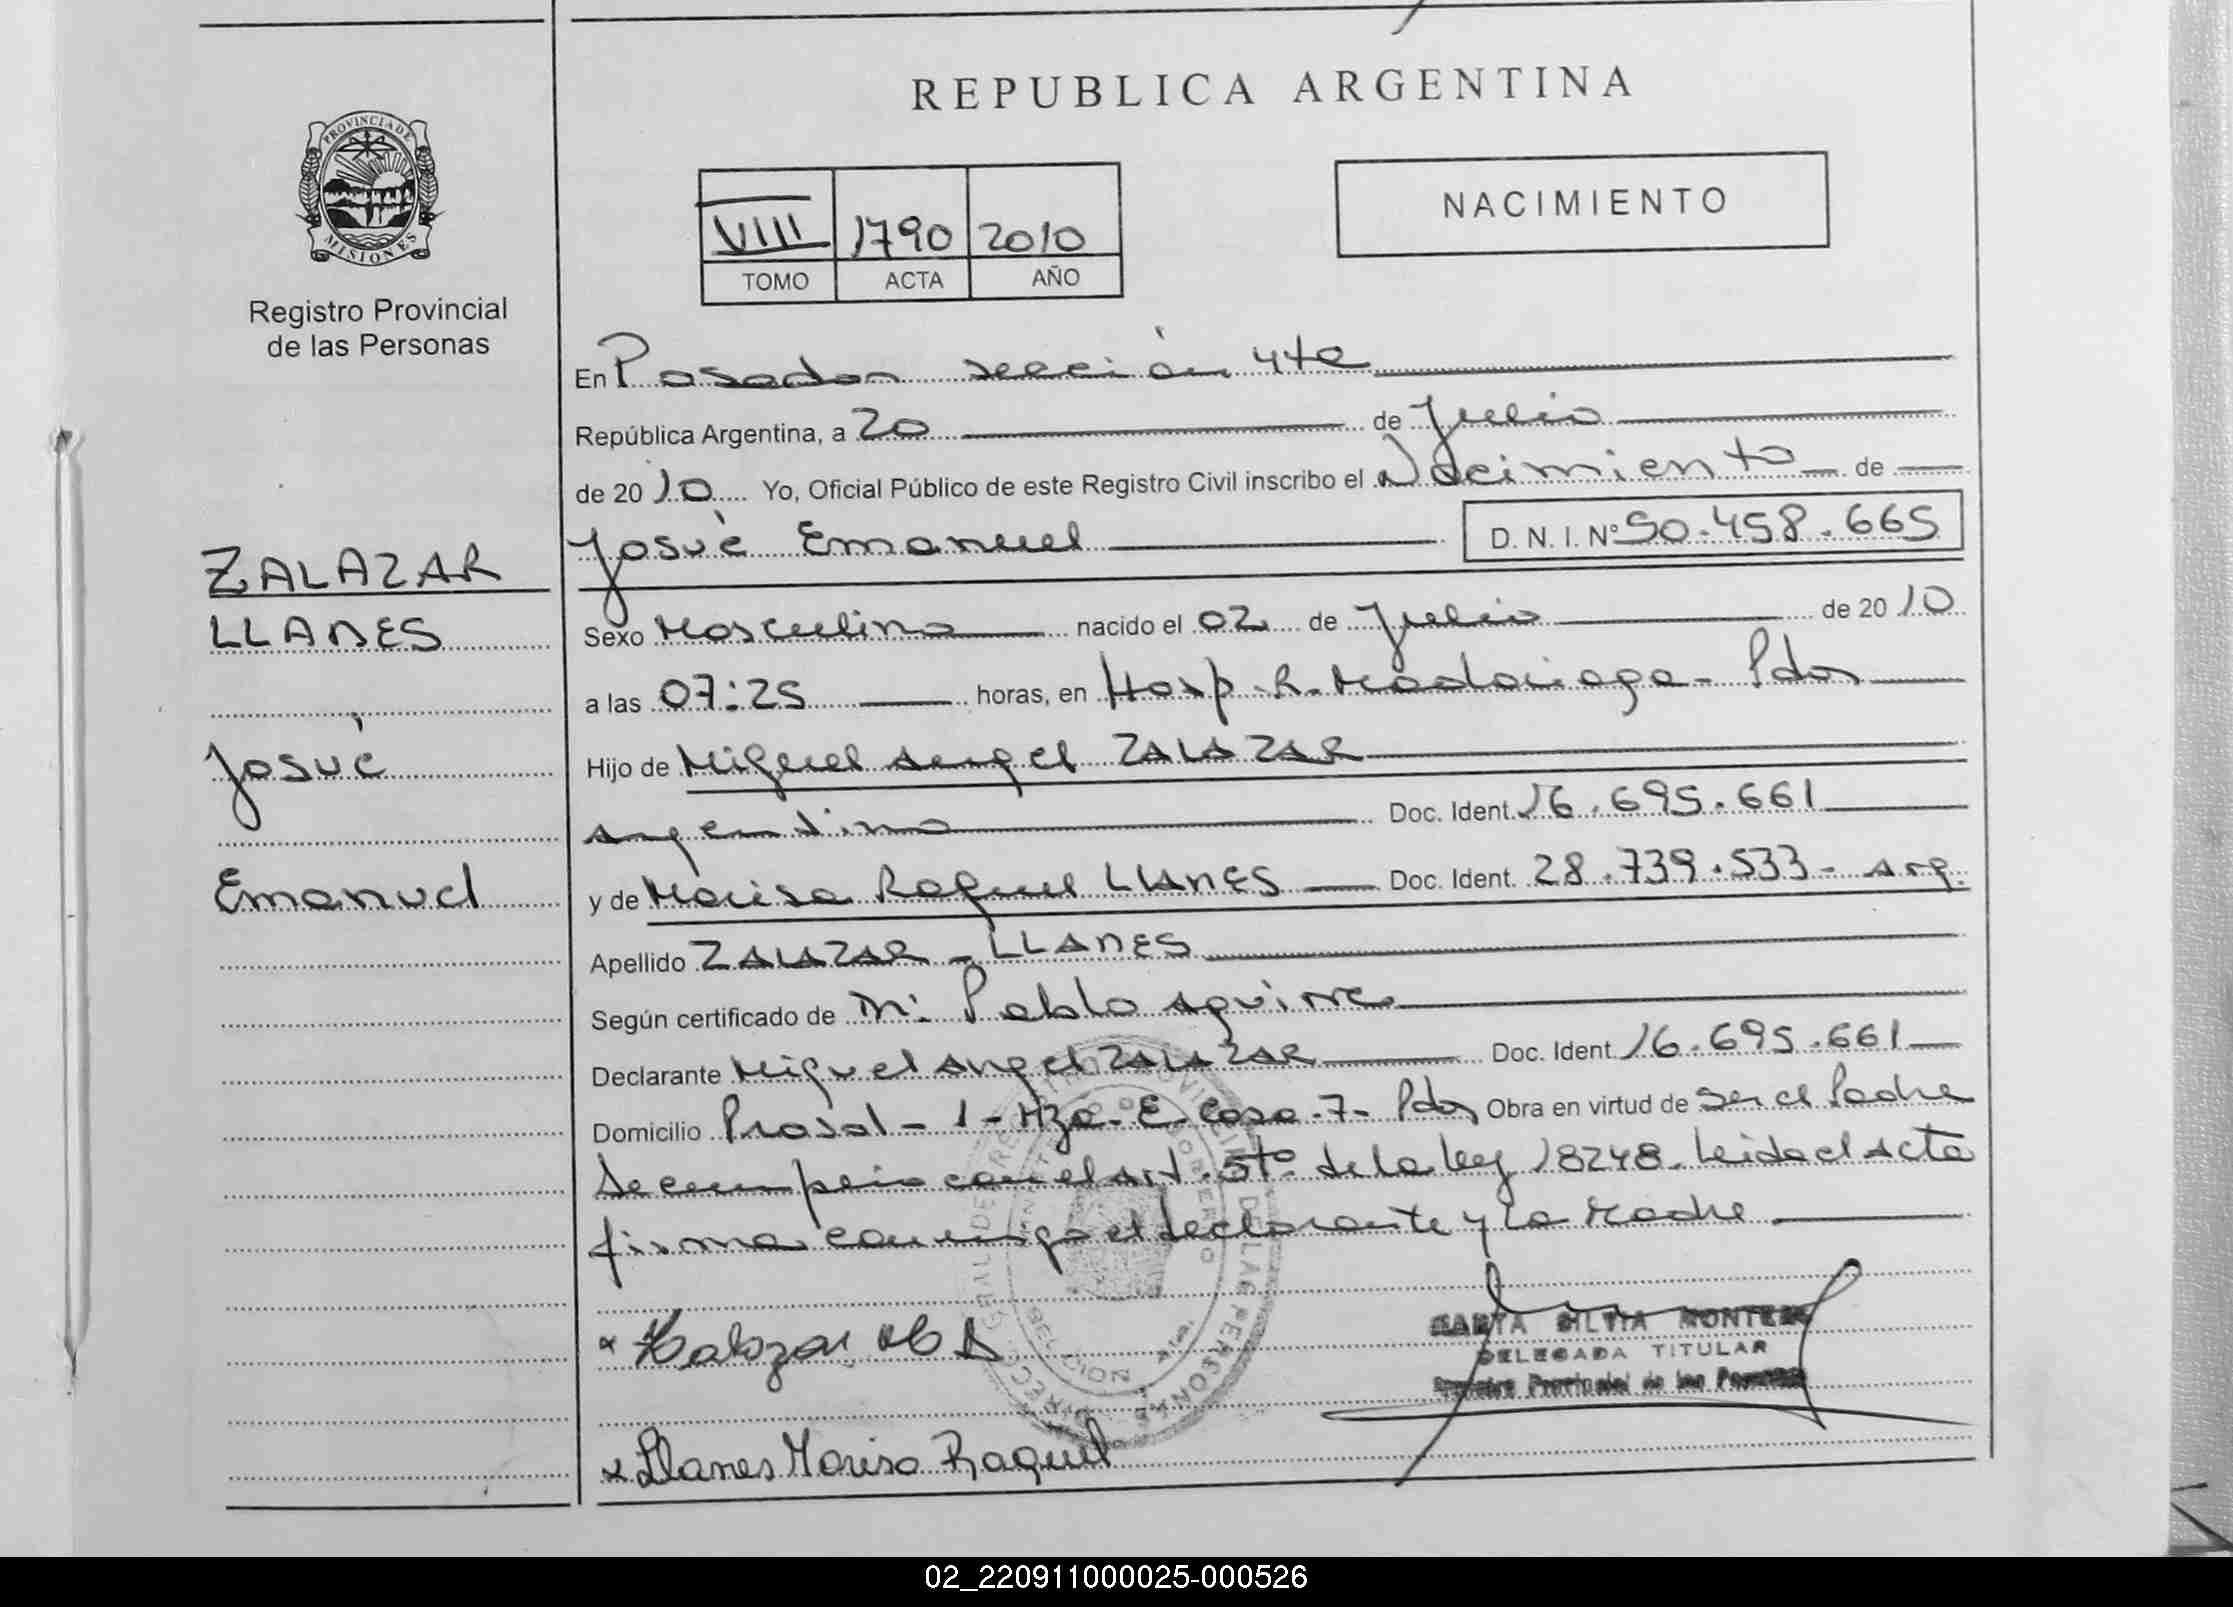 REPUBLICA ARGENTINA
PROVINCIA DE
MISIONES
Registro Provincial
de las Personas
NACIMIENTO
VIII 1790 2010
TOMO ACTA AÑO
En Posadas sección 4ta
República Argentina, a 20 de Julio
de 2010 Yo, Oficial Público de este Registro Civil inscribo el Nacimiento de
Josué Emanuel D. N. I. Nº 50.458.665
ZALAZAR
LLANES
Josué
Emanuel
Sexo Masculino nacido el 02 de Julio de 2010
a las 07:25 horas, en Hosp. R. Madariaga - Pdas
Hijo de Miguel Angel ZALAZAR
argentino Doc. Ident. 16.695.661
y de Marisa Raquel LLANES Doc. Ident. 28.739.533 - arg.
Apellido ZALAZAR - LLANES
Según certificado de Pablo Aguirre
Declarante Miguel Angel ZALAZAR Doc. Ident. 16.695.661
Domicilio Prosol - 1 - Mza. E. Casa - 7 - Pdas Obra en virtud de ser el Padre
Se cumplio con el art. 5to de la ley 18248. Leida el Acta
firma conmigo el declarante y la Madre
x Zalazar M A
MARTA SILVIA
DELEGADA TITULAR
Registro Provincial de las Personas
x Llanes Marisa Raquel
02_220911000025-000526